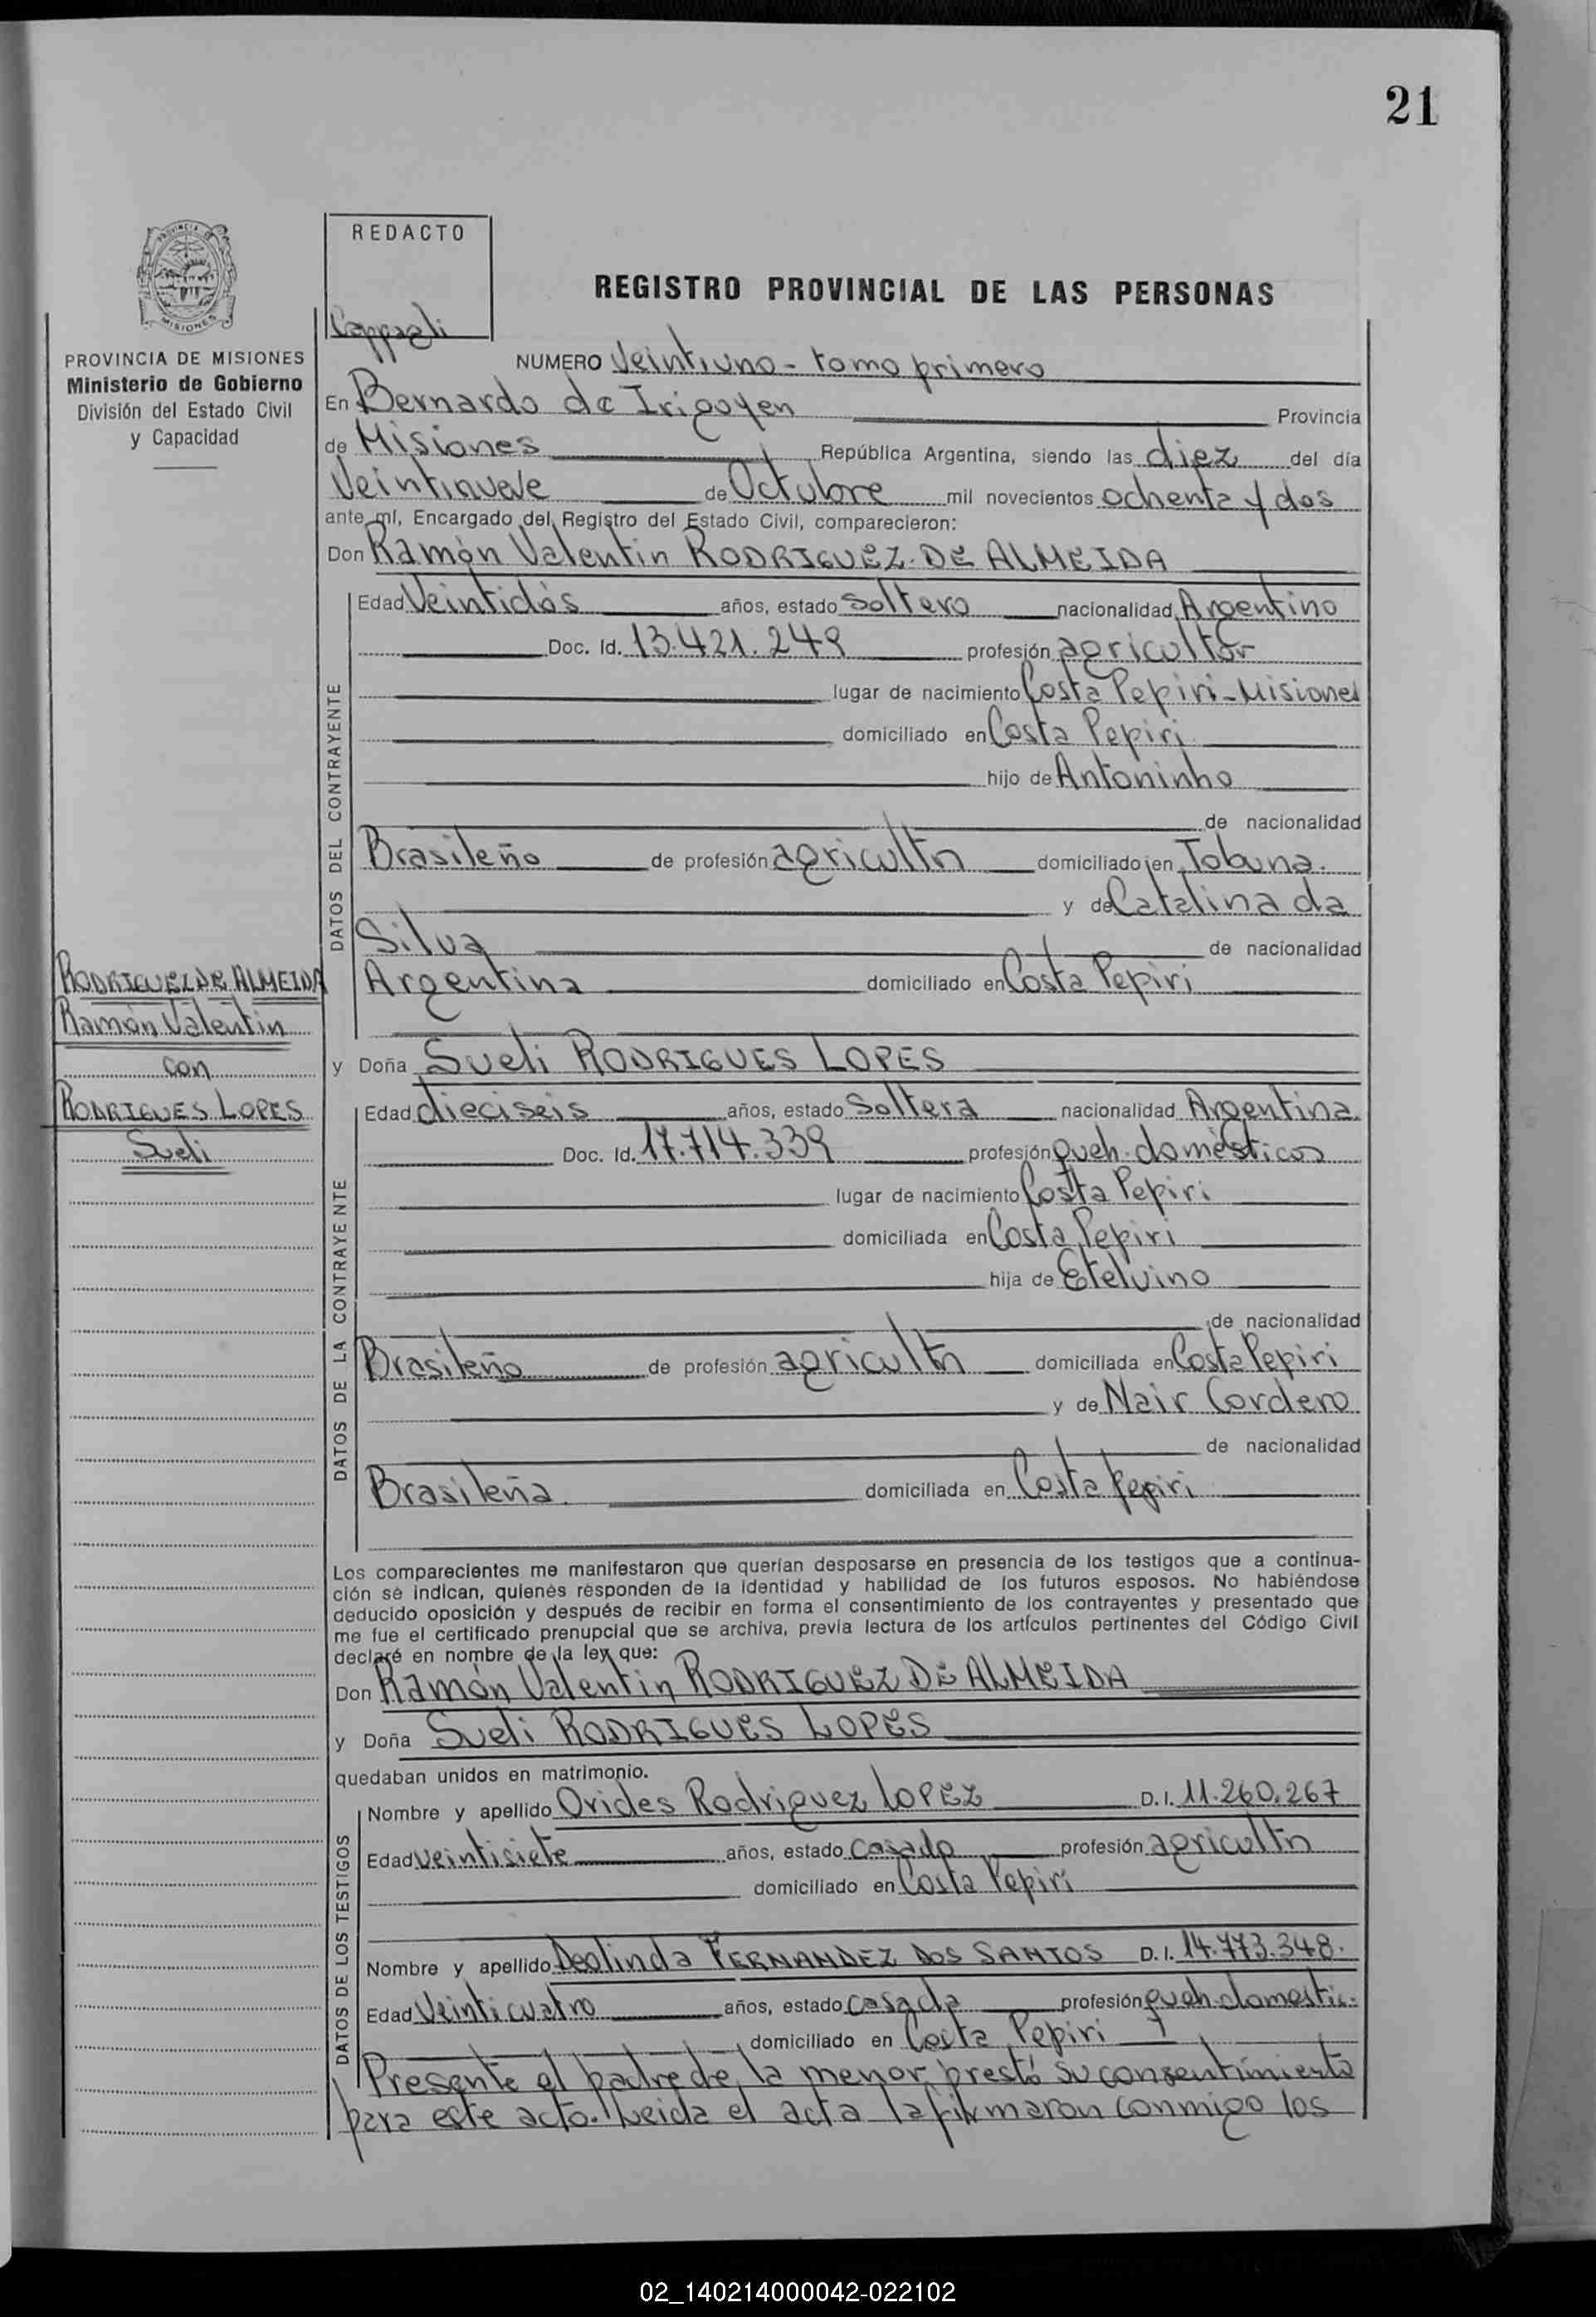 21
REDACTO
REGISTRO PROVINCIAL DE LAS PERSONAS
PROVINCIA DE MISIONES
Ministerio de Gobierno
División del Estado Civil
y Capacidad
NUMERO Veintiuno - tomo primero
En Bernardo de Irigoyen Provincia
de Misiones República Argentina, siendo las diez del día
Veintinueve de Octubre mil novecientos ochenta y dos
ante mí, Encargado del Registro del Estado Civil, comparecieron:
Don Ramón Valentin RODRIGUEZ DE ALMEIDA
DATOS DEL CONTRAYENTE
Edad Veintidós años, estado Soltero nacionalidad Argentino
Doc. Id. 13.421.249 profesión agricultor
lugar de nacimiento Costa Pepiri - Misiones
domiciliado en Costa Pepiri
hijo de Antoninho
de nacionalidad
Brasileño de profesión agricultn domiciliado en Tobuna.
y de Catalina da
Silva de nacionalidad
Argentina domiciliado en Costa Pepiri
RODRIGUEZ DE ALMEIDA
Ramón Valentin
con
RODRIGUES LOPES
Sueli
y Doña Sueli RODRIGUES LOPES
DATOS DE LA CONTRAYENTE
Edad dieciseis años, estado Soltera nacionalidad Argentina.
Doc. Id. 17.714.339 profesión queh. domésticos
lugar de nacimiento Costa Pepiri
domiciliada en Costa Pepiri
hija de Etelvino
de nacionalidad
Brasileño de profesión agricultn domiciliada en Costa Pepiri
y de Nair Cordero
de nacionalidad
Brasileña. domiciliada en Costa Pepiri
Los comparecientes me manifestaron que querían desposarse en presencia de los testigos que a continua-
ción se indican, quienes responden de la identidad y habilidad de los futuros esposos. No habiéndose
deducido oposición y después de recibir en forma el consentimiento de los contrayentes y presentado que
me fue el certificado prenupcial que se archiva, previa lectura de los artículos pertinentes del Código Civil
declaré en nombre de la ley que:
Don Ramón Valentin RODRIGUEZ DE ALMEIDA
y Doña Sueli RODRIGUES LOPES
quedaban unidos en matrimonio.
DATOS DE LOS TESTIGOS
Nombre y apellido Orides Rodriguez LOPEZ D.I. 11.260.267
Edad Veintisiete años, estado casado profesión agricultn
domiciliado en Costa Pepiri
Nombre y apellido Deolinda FERNANDEZ DOS SANTOS D.I. 14.773.348.
Edad Veinticuatro años, estado casada profesión queh. domestic.
domiciliado en Costa Pepiri
Presente el padre de la menor prestó su consentimiento
para este acto. Leida el acta la firmaron conmigo los
02_140214000042-022102